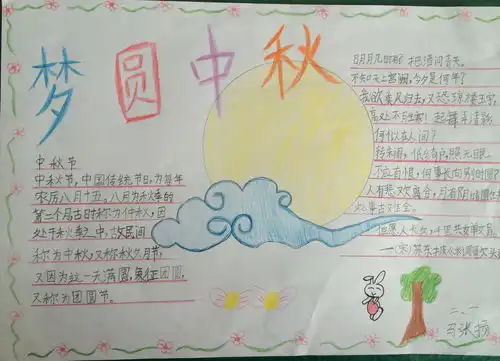 梦圆中秋
中秋节
中秋节,中国传统节日,为每年
农历八月十五。八月为秋季的
第二个月古时称为仲秋,因
处于秋季之中,故民间
称为中秋,又称秋夕,八月节,
又因为这一天满圆,象征团圆,
又称为团圆节。
明月几时有?把酒问青天。
不知天上宫阙,今夕是何年?
我欲乘风归去,又恐琼楼玉宇,
高处不胜寒!起舞弄清影
何似在人间?
转朱阁,低绮户,照无眠。
不应有恨,何事长向别时圆?
人有悲欢离合,月有阴晴圆缺
此事古难全。
但愿人长久,千里共婵娟。
—(宋)苏东坡《水调歌头》
二、1
张扬